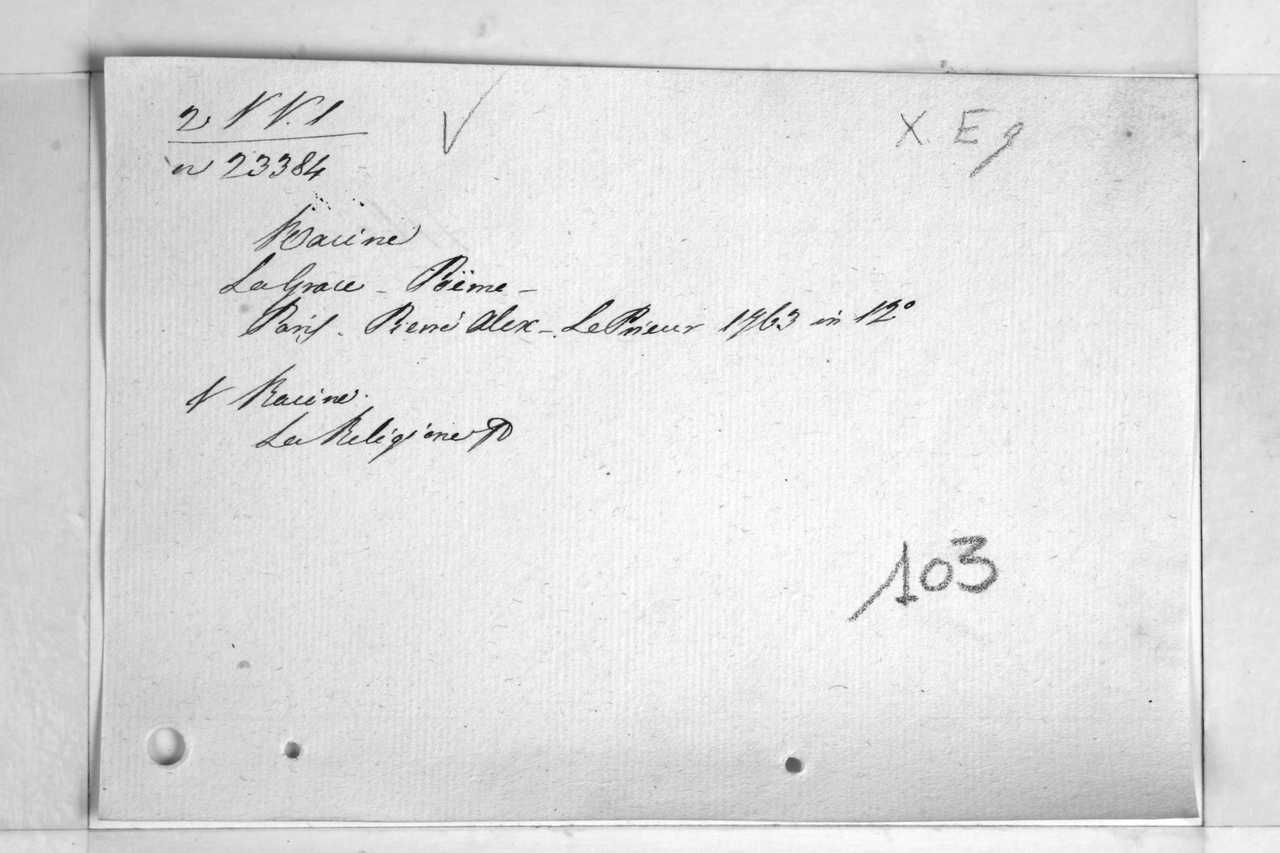 2 VV. 1
X E 9
n 23384
Racine
La Grace - Poëme -
Paris - René Alex - Le Prieur 1763 in 12°
Racine.
La Religione
103